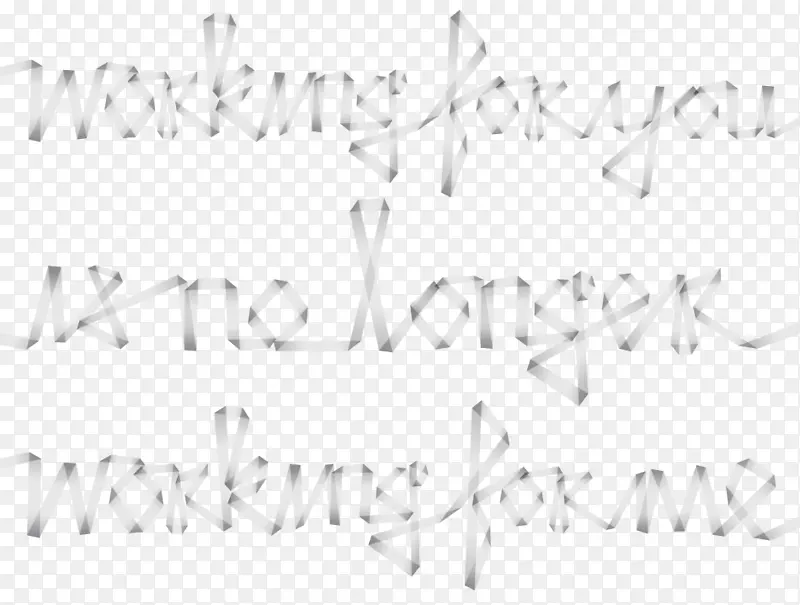 working for you
is no longer
working for me